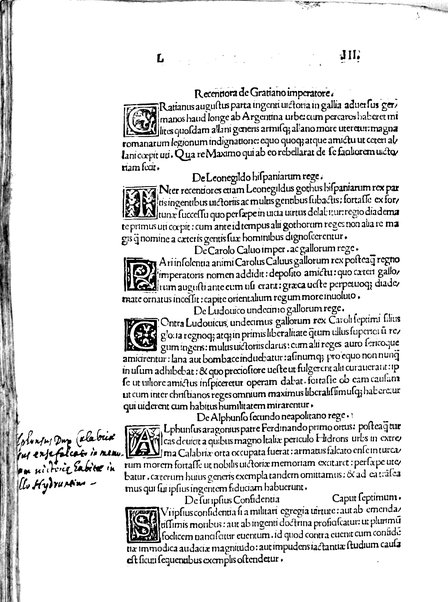 L III.
Recentiora de Gratiano imperatore.
GRatianus augustus parta ingenti uictoria in gallia aduersus ger
manos haud longe ab Argentina urbe: cum percaros haberet mi
lites quosdam allani generis armisq; alano more uteretur: magna
romanarum legionum indignatione: equo quoq; atque amictu ut cæteri al
lani cœpit uti. Qua re Maximo qui ab eo rebellarat de se faciliorem uicto
riam fecit.
De Leonegildo hispaniarum rege.
INter recentiores etiam Leonegildus gothus hispaniarum rex par
tis ingentibus uictoriis ac multis gentibus subactis: fortasse ex for
tunæ successu quo persæpe in uicia uirtus delabitur: regio diadema
te primus uti cœpit: cum ante id tempus alii gothorum reges non alia re ma
gis q̄ nomine a cæteris gentis suæ hominibus dignoscerentur.
De Carolo Caluo imper. ac gallorum rege.
PAri insolentia animi Carolus Caluus gallorum rex posteaq̄ regno
imperatoris nomen addidit: deposito amictu: quo cæteri gallo
rum augusti ante eum usi erant: græca ueste perpetuoq; diade
mate ornatus incessit: capite orientalium regum more inuoluto.
De Ludouico undecimo gallorum rege.
COntra Ludouicus, undecimus gallorum rex Caroli septimi filius
gloria regnoq; atq; in primis liberalitate q̄tum ullus superiorū re
gum ingens: multis uictoriis clarus: cum alii reges auro sericoque
amicirentur: lana aut bombace induebatur: asinumq; pro equo non nunq̄
in usum adhibebat: & quo preciosiore ueste ut fulgerent alii curauerant: ip
se ut uiliore amictus inspiceretur operam dabat. fortasse ob eam causam
ut cum inter christianos reges omnium maximus liberalissimusq; haberetur
qui uiderent eum habitus humilitatem mirarentur.
De Alphunso secundo neapolitano rege.
ALphunsus aragonius parte Ferdinando primo ortus: posteaq̄ tur
cas deuicit a quibus magna Italiæ periculo Hidrons urbs in extre
ma Calabriæ ora occupata fuerat: armatus falcato ense in turca
rum morem fortasse ut nobilis uictoriæ memoriam excitaret: persæpe ute
batur. cæterum huius generis exempla tandem omittamus: & ad ea trāsea
mus qui sui ipsius ingentem fiduciam habuerunt.
De sui ipsius Confidentia Caput septimum.
SVi ipsius confidentia si a militari egregia uirtute: aut ab emenda
tissimis moribus: aut ab ingenti doctrina proficiscatur: ut plurimū
fœlicem nanciscitur euentum. id quod contra euenit cum confidē
tiæ immodica audaciæ magnitudo: aut impudens iactantiæ studium causa
est sicuti sequentibus exemplis ostendetur.
Alphonsus Dux Calabriæ
ense falcato in memo
riam uictoriæ habitæ in
Hydruntino